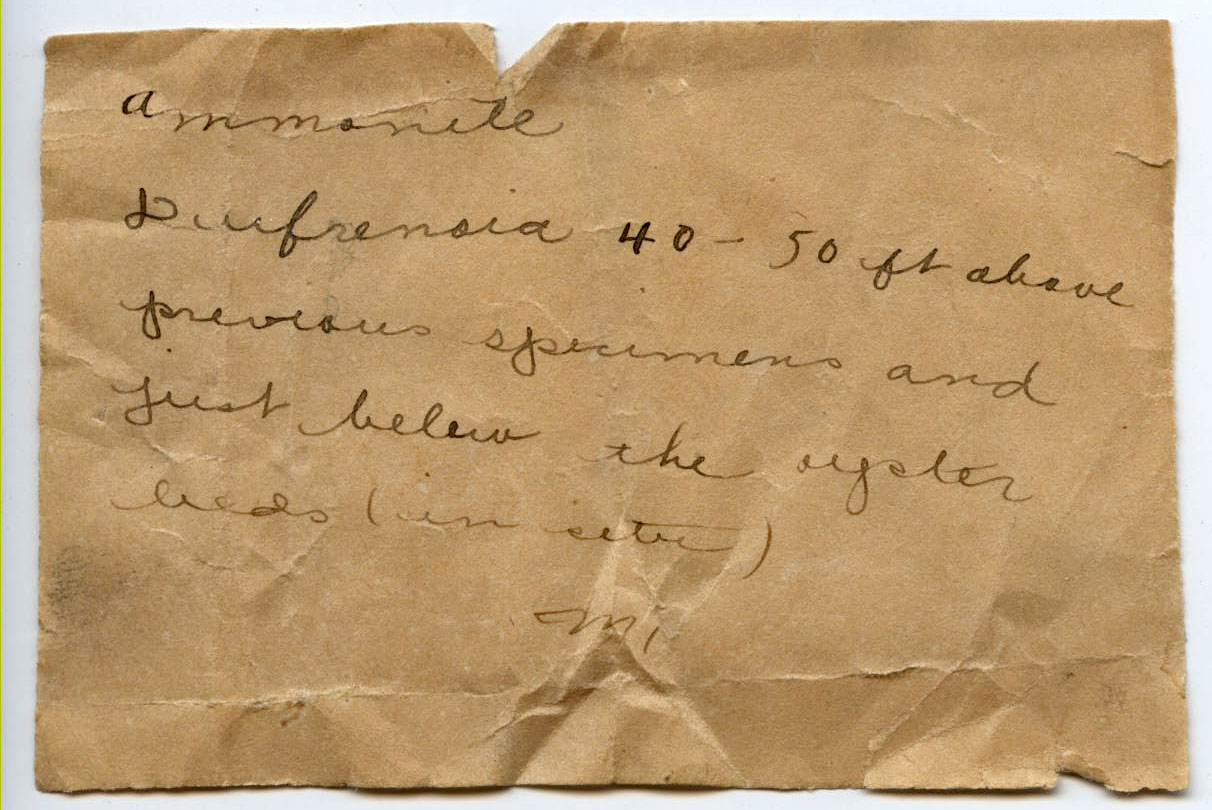 Ammonite
Dufrenoia 40-50 ft above
previous specimens and
just below the oyster
beds (in situ)